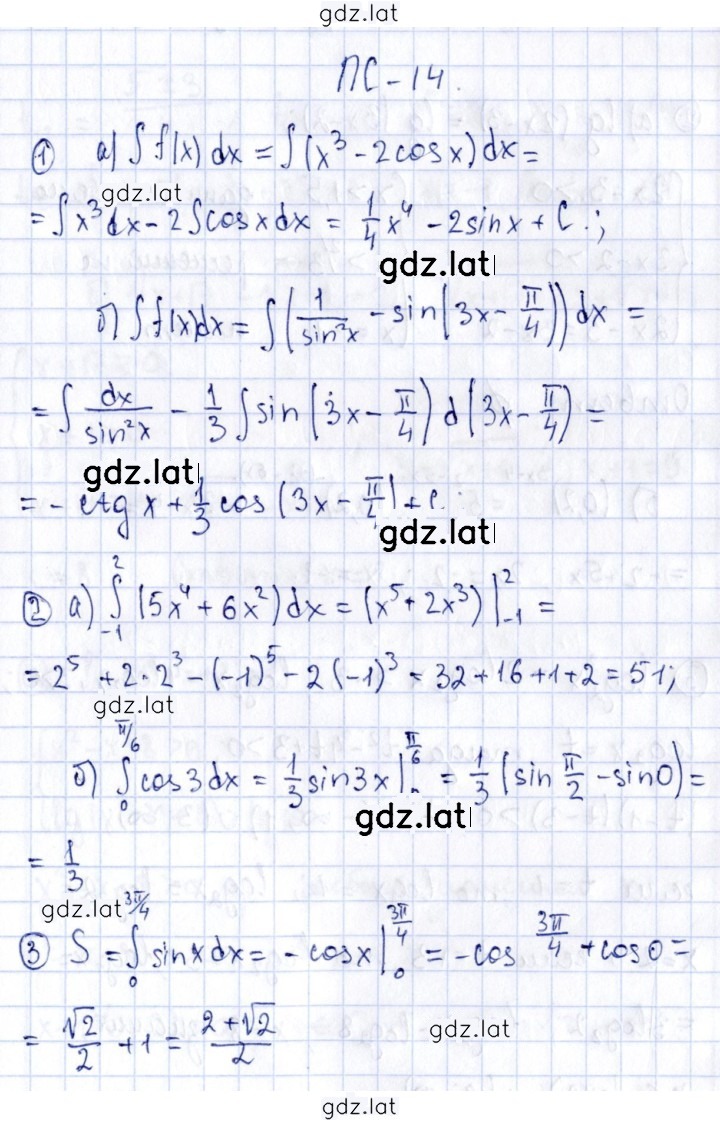 gdz.lat
ПС-14.
① а) ∫ f(x) dx = ∫ (x³ - 2cosx) dx =
gdz.lat
= ∫ x³dx - 2∫cosxdx = 1/4 x⁴ - 2sinx + C.;
gdz.lat
б) ∫ f(x)dx = ∫ (1/sin²x - sin(3x - π/4)) dx =
= ∫ dx/sin²x - 1/3 ∫ sin(3x - π/4) d(3x - π/4) =
gdz.lat
= - ctg x + 1/3 cos (3x - π/4) + C.
gdz.lat
② а) ∫₋₁² (5x⁴ + 6x²) dx = (x⁵ + 2x³) |₋₁² =
= 2⁵ + 2·2³ - (-1)⁵ - 2(-1)³ = 32 + 16 + 1 + 2 = 51;
gdz.lat
б) ∫₀^(π/6) cos3dx = 1/3 sin3x |₀^(π/6) = 1/3 (sin π/2 - sin0) =
gdz.lat
= 1/3
gdz.lat
③ S = ∫₀^(3π/4) sinxdx = - cosx |₀^(3π/4) = -cos 3π/4 + cos0 =
= √2/2 + 1 = (2+√2)/2
gdz.lat
gdz.lat